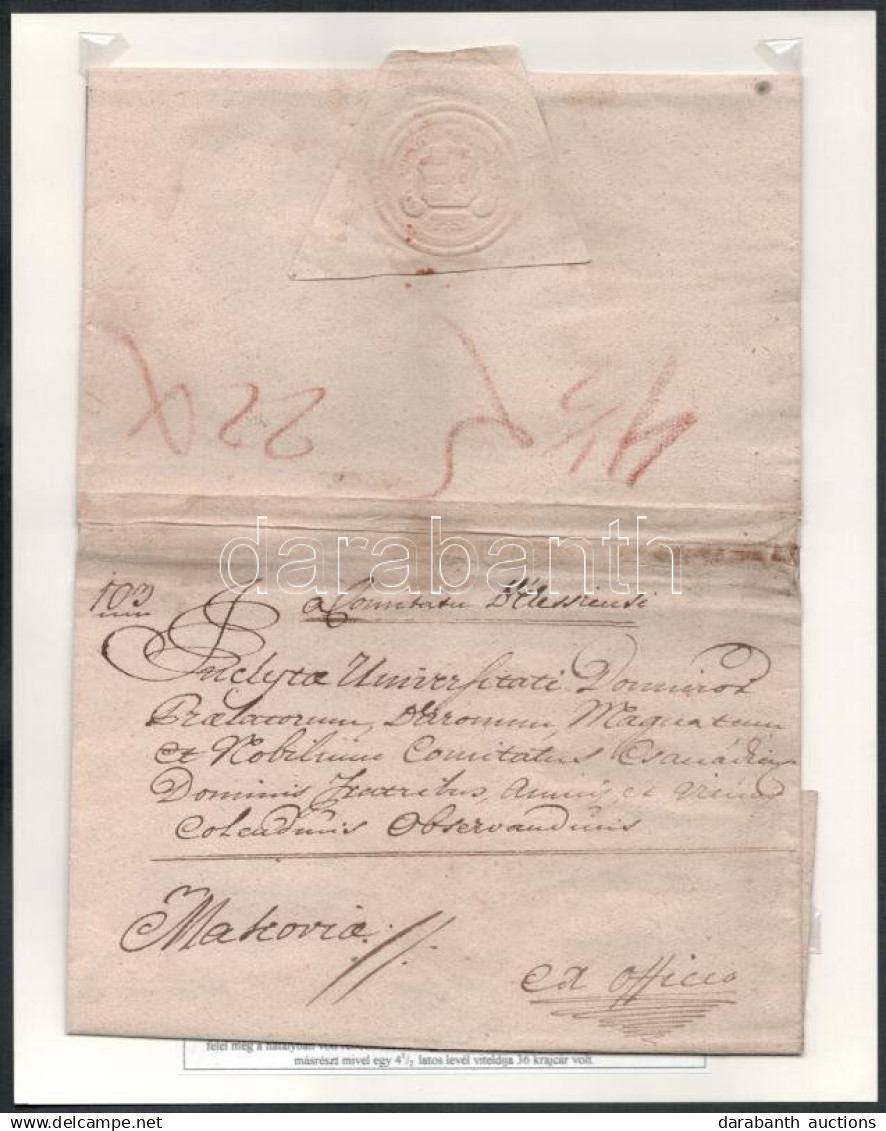 22
4 1/2
darabanth
103
a Comitatu
Inclytæ Universitati Dominorum
Prælatorum, Baronum, Magnatum
et Nobilium Comitatus Csanádien
Dominis Fratribus, Amicis, et Vicinis
Colendimis Observandimis
Makoviæ
ex officio
felel meg a hatályban volt
másrészt mivel egy 4 1/2 latos levél viteldíja 36 krajcár volt.
darabanth auctions